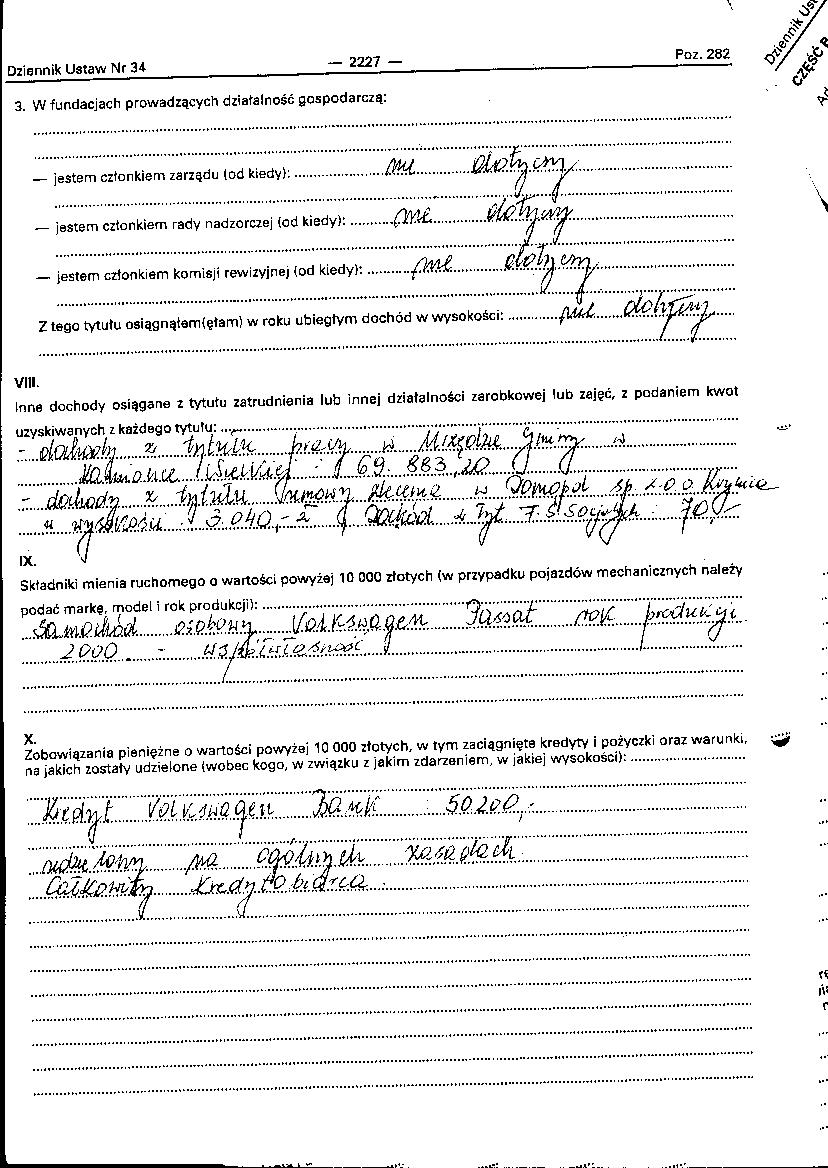 Dziennik Ustaw Nr 34 — 2227 — Poz. 282
Dziennik Ust
CZĘŚĆ
3. W fundacjach prowadzących działalność gospodarczą:
— jestem członkiem zarządu (od kiedy): nie dotyczy
— jestem członkiem rady nadzorczej (od kiedy): nie dotyczy
— jestem członkiem komisji rewizyjnej (od kiedy): nie dotyczy
Z tego tytułu osiągnąłem(ęłam) w roku ubiegłym dochód w wysokości: nie dotyczy
VIII.
Inne dochody osiągane z tytułu zatrudnienia lub innej działalności zarobkowej lub zajęć, z podaniem kwot
uzyskiwanych z każdego tytułu:
- dochody z tytułu pracy w Urzędzie Gminy w
Kamionce Wielkiej : 69 883,20
- dochody z tytułu umowy zlecenia w Domopol sp. z o.o. Krynica
w wysokości 3.040,- zł Dochód z tyt. 70,-
IX.
Składniki mienia ruchomego o wartości powyżej 10 000 złotych (w przypadku pojazdów mechanicznych należy
podać markę, model i rok produkcji):
Samochód osobowy Volkswagen Passat rok produkcji
2000 - współwłasność
X.
Zobowiązania pieniężne o wartości powyżej 10 000 złotych, w tym zaciągnięte kredyty i pożyczki oraz warunki,
na jakich zostały udzielone (wobec kogo, w związku z jakim zdarzeniem, w jakiej wysokości):
Kredyt Volkswagen Bank : 50200,-
udzielony na ogólnych zasadach.
Całkowity kredytobiorca.